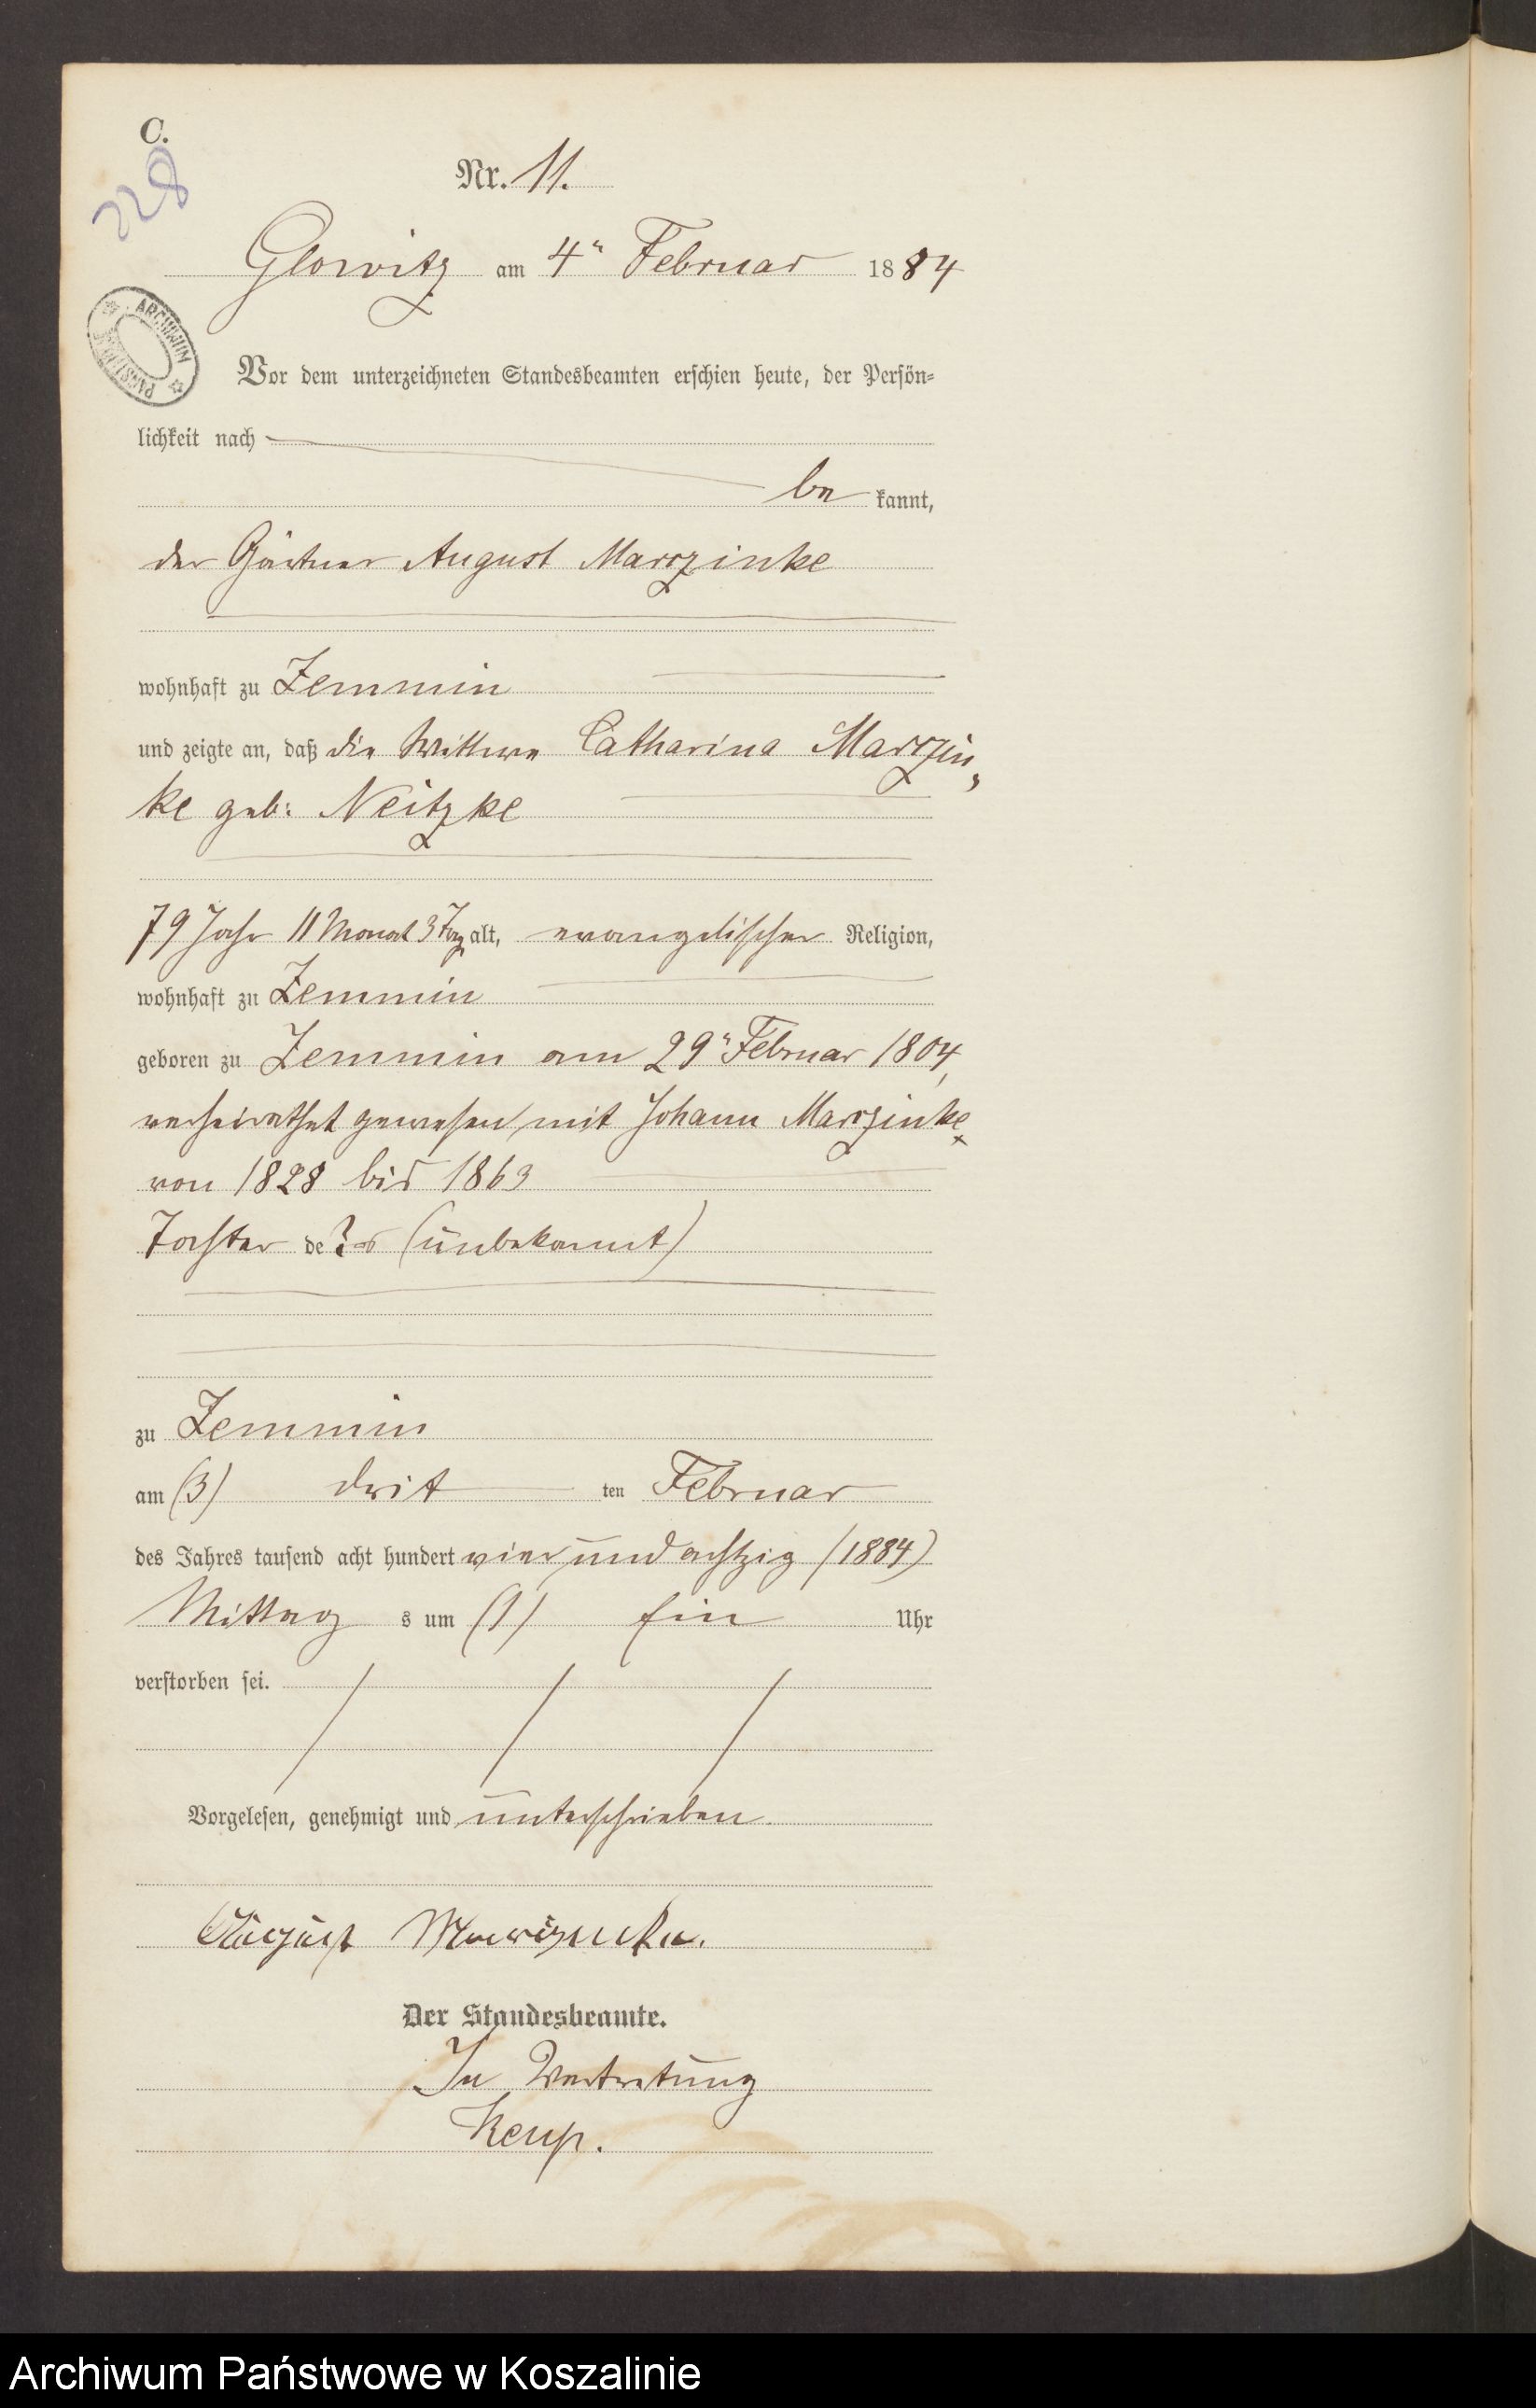 C.
228
Nr. 11.
Glowitz am 4ⁿ Februar 1884
ARCHIWUM PAŃSTWOWE
Vor dem unterzeichneten Standesbeamten erschien heute, der Persön-
lichkeit nach
be kannt,
der Gärtner August Marczinke
wohnhaft zu Zemmin
und zeigte an, daß die Wittwe Catharina Marczin,
ke geb: Neitzke
79 Jahr 11 Monat 3 Tag alt, evangelischer Religion,
wohnhaft zu Zemmin
geboren zu Zemmin am 29ⁿ Februar 1804,
verheirathet gewesen mit Johann Marczinke
von 1828 bis 1863
Tochter de ? (unbekannt)
zu Zemmin
am (3) drit ten Februar
des Jahres tausend acht hundert vier und achtzig (1884)
Mittag s um (1) Ein Uhr
verstorben sei.
Vorgelesen, genehmigt und unterschrieben.
August
Der Standesbeamte.
In Vertretung
Archiwum Państwowe w Koszalinie